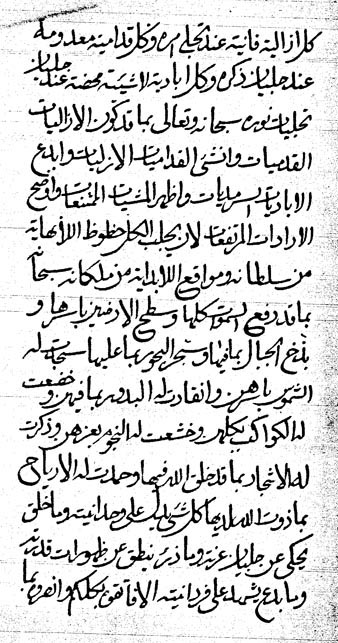 كل ازالية فانية عند تجلي امره وكل قدامية معدومة
عند جليان ذكره وكل ابادية لاشيئية محضة عند جليان
تجليات نوره سبحانه وتعالى بما قد كون الازاليات
القدميات وانشئ القداميات الازليات وابدع
الاباديات السرمديات واظهر المشيات الممتنعات واوضح
الارادات المرتفعات لان يجلب الكل حظوظ اللانهاية
من سلطانه ومواقع اللابداية من ملكانه سبحانه
بما قد رفع السموات كلها وسطح الارضين باسرها و
بذخ الجبال بما فيها وسجر البحور بما عليها سجدت له
الشموس باهن وانقادت له البدور بما فيهن وخضعت
له الكواكب بكلهن وخشعت له النجوم بعزهن وذكرت
له الاشجار بما قد خلق الله فيها وحملت له الارياح
بما ذوت الله لديها كل شيء يدل على وحدانيته وما خلق
يحكي عن جليان عزته وما ذرء ينطق عن ظهورات قدرته
وما بدع يشهد على فردانيته الا فاتقون بكلكم وانصرون بما